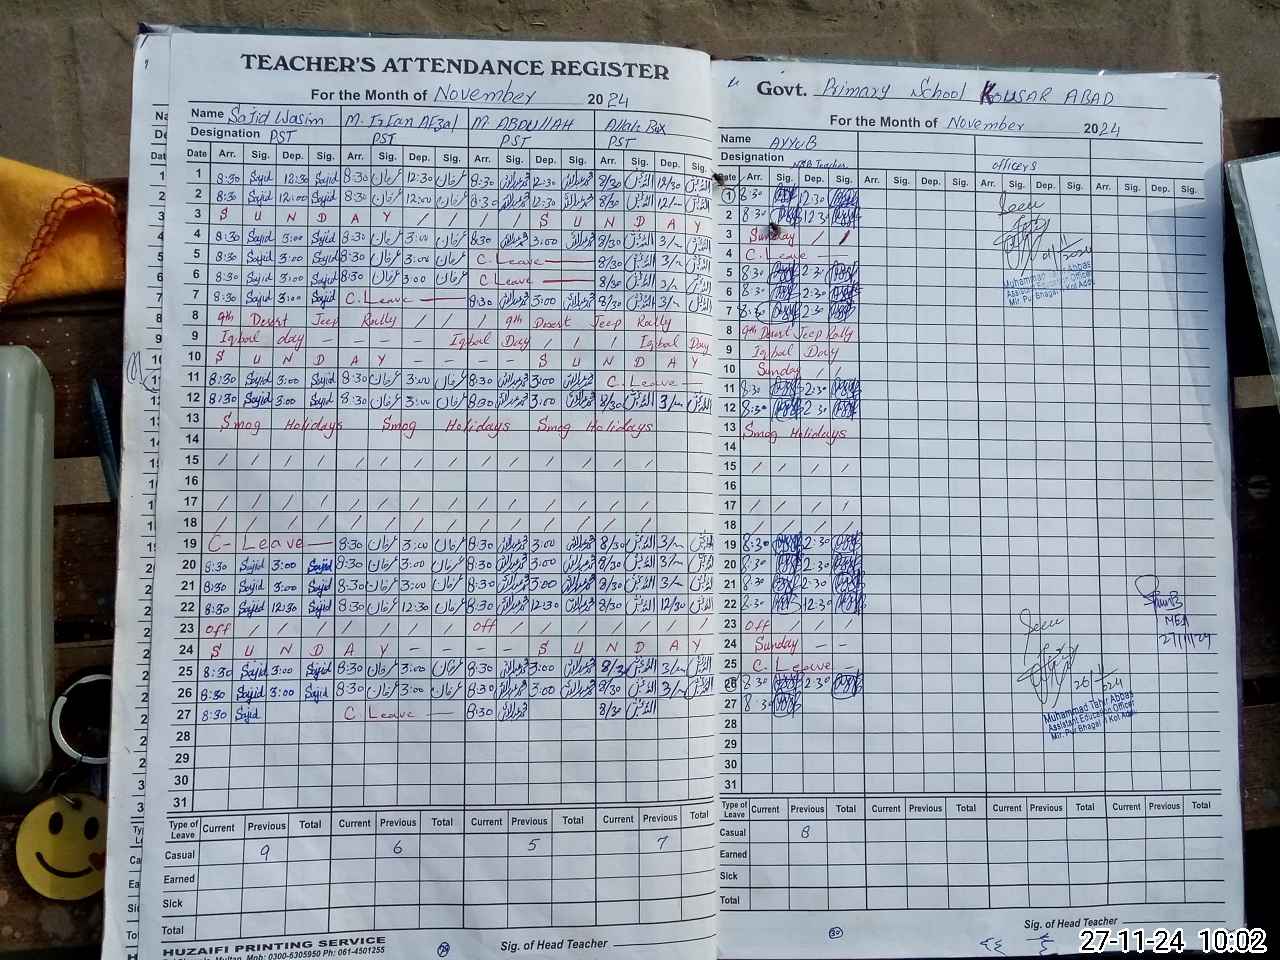 TEACHER'S ATTENDANCE REGISTER
For the Month of November 2024
Name Sajid Wasim M. Irfan Afzal M. ABDULLAH Allah Bux
Designation PST PST PST PST
Date Arr. Sig. Dep. Sig. Arr. Sig. Dep. Sig. Arr. Sig. Dep. Sig. Arr. Sig. Dep. Sig.
1 8:30 Sajid 12:30 Sajid 8:30 عرفان 12:30 عرفان 8:30 12:30 8/30 12/30
2 8:30 Sajid 12:00 Sajid 8:30 عرفان 12:00 عرفان 8:30 12:30 8/30 12/-
3 S U N D A Y / / / / S U N D A Y
4 8:30 Sajid 3:00 Sajid 8:30 عرفان 3:00 عرفان 8:30 3:00 8/30 3/-
5 8:30 Sajid 3:00 Sajid 8:30 عرفان 3:00 عرفان C. Leave 8/30 3/-
6 8:30 Sajid 3:00 Sajid 8:30 عرفان 3:00 عرفان C. Leave 8/30 3/-
7 8:30 Sajid 3:00 Sajid C. Leave 8:30 3:00 8/30 3/-
8 9th Desert Jeep Rally / / / 9th Desert Jeep Rally
9 Iqbal day - - - - Iqbal Day / / / Iqbal Day
10 S U N D A Y - - - - S U N D A Y
11 8:30 Sajid 3:00 Sajid 8:30 عرفان 3:00 عرفان 8:30 3:00 C. Leave -
12 8:30 Sajid 3:00 Sajid 8:30 عرفان 3:00 عرفان 8:30 3:00 8/30 3/-
13 Smog Holidays Smog Holidays Smog Holidays
14
15 / / / / / / / / / / / / / /
16
17 / / / / / / / / / / / / / /
18 / / / / / / / / / / / / / /
19 C- Leave 8:30 عرفان 3:00 عرفان 8:30 3:00 8/30 3/-
20 8:30 Sajid 3:00 Sajid 8:30 عرفان 3:00 عرفان 8:30 3:00 8/30 3/-
21 8:30 Sajid 3:00 Sajid 8:30 عرفان 3:00 عرفان 8:30 3:00 8/30 3/-
22 8:30 Sajid 12:30 Sajid 8:30 عرفان 12:30 عرفان 8:30 12:30 8/30 12/30
23 off / / / / / / / off / / / / / / /
24 S U N D A Y - - - - S U N D A Y
25 8:30 Sajid 3:00 Sajid 8:30 عرفان 3:00 عرفان 8:30 3:00 8/30 3/-
26 8:30 Sajid 3:00 Sajid 8:30 عرفان 3:00 عرفان 8:30 3:00 8/30 3/-
27 8:30 Sajid C Leave 8:30 8/30
28
29
30
31
Type of Leave Current Previous Total Current Previous Total Current Previous Total Current Previous Total
Casual 9 6 5 7
Earned
Sick
Total
HUZAIFI PRINTING SERVICE
Multan, Mob: 0300-6305950 Ph: 061-4501255
29
Sig. of Head Teacher
Govt. Primary School KOUSAR ABAD
For the Month of November 2024
Name AYYUB
Designation NSB Teacher officers
Date Arr. Sig. Dep. Sig. Arr. Sig. Dep. Sig. Arr. Sig. Dep. Sig. Arr. Sig. Dep. Sig.
1 8:30 12:30 Seen
2 8:30 12:30
3 Sunday / /
4 C. Leave - 01/11/2024
5 8:30 2:30 Muhammad Tahir Abbas
6 8:30 2:30 Assistant Education Officer
7 8:30 2:30 Mir. Pur Bhagal Kot Addu
8 9th Desert Jeep Rally
9 Iqbal Day
10 Sunday / /
11 8:30 2:30
12 8:30 2:30
13 Smog Holidays
14
15 / / / /
16
17 / / / /
18 / / / /
19 8:30 2:30
20 8:30 2:30
21 8:30 2:30
22 8:30 12:30
23 off / / / Seen MEA
24 Sunday - - 27/11/24
25 C. Leave -
26 8:30 2:30 26/11/2024
27 8:30 Muhammad Tahir Abbas
28 Assistant Education Officer
29 Mir. Pur Bhagal Kot Addu
30
31
Type of Leave Current Previous Total Current Previous Total Current Previous Total Current Previous Total
Casual 8
Earned
Sick
Total
30
Sig. of Head Teacher
27-11-24 10:02